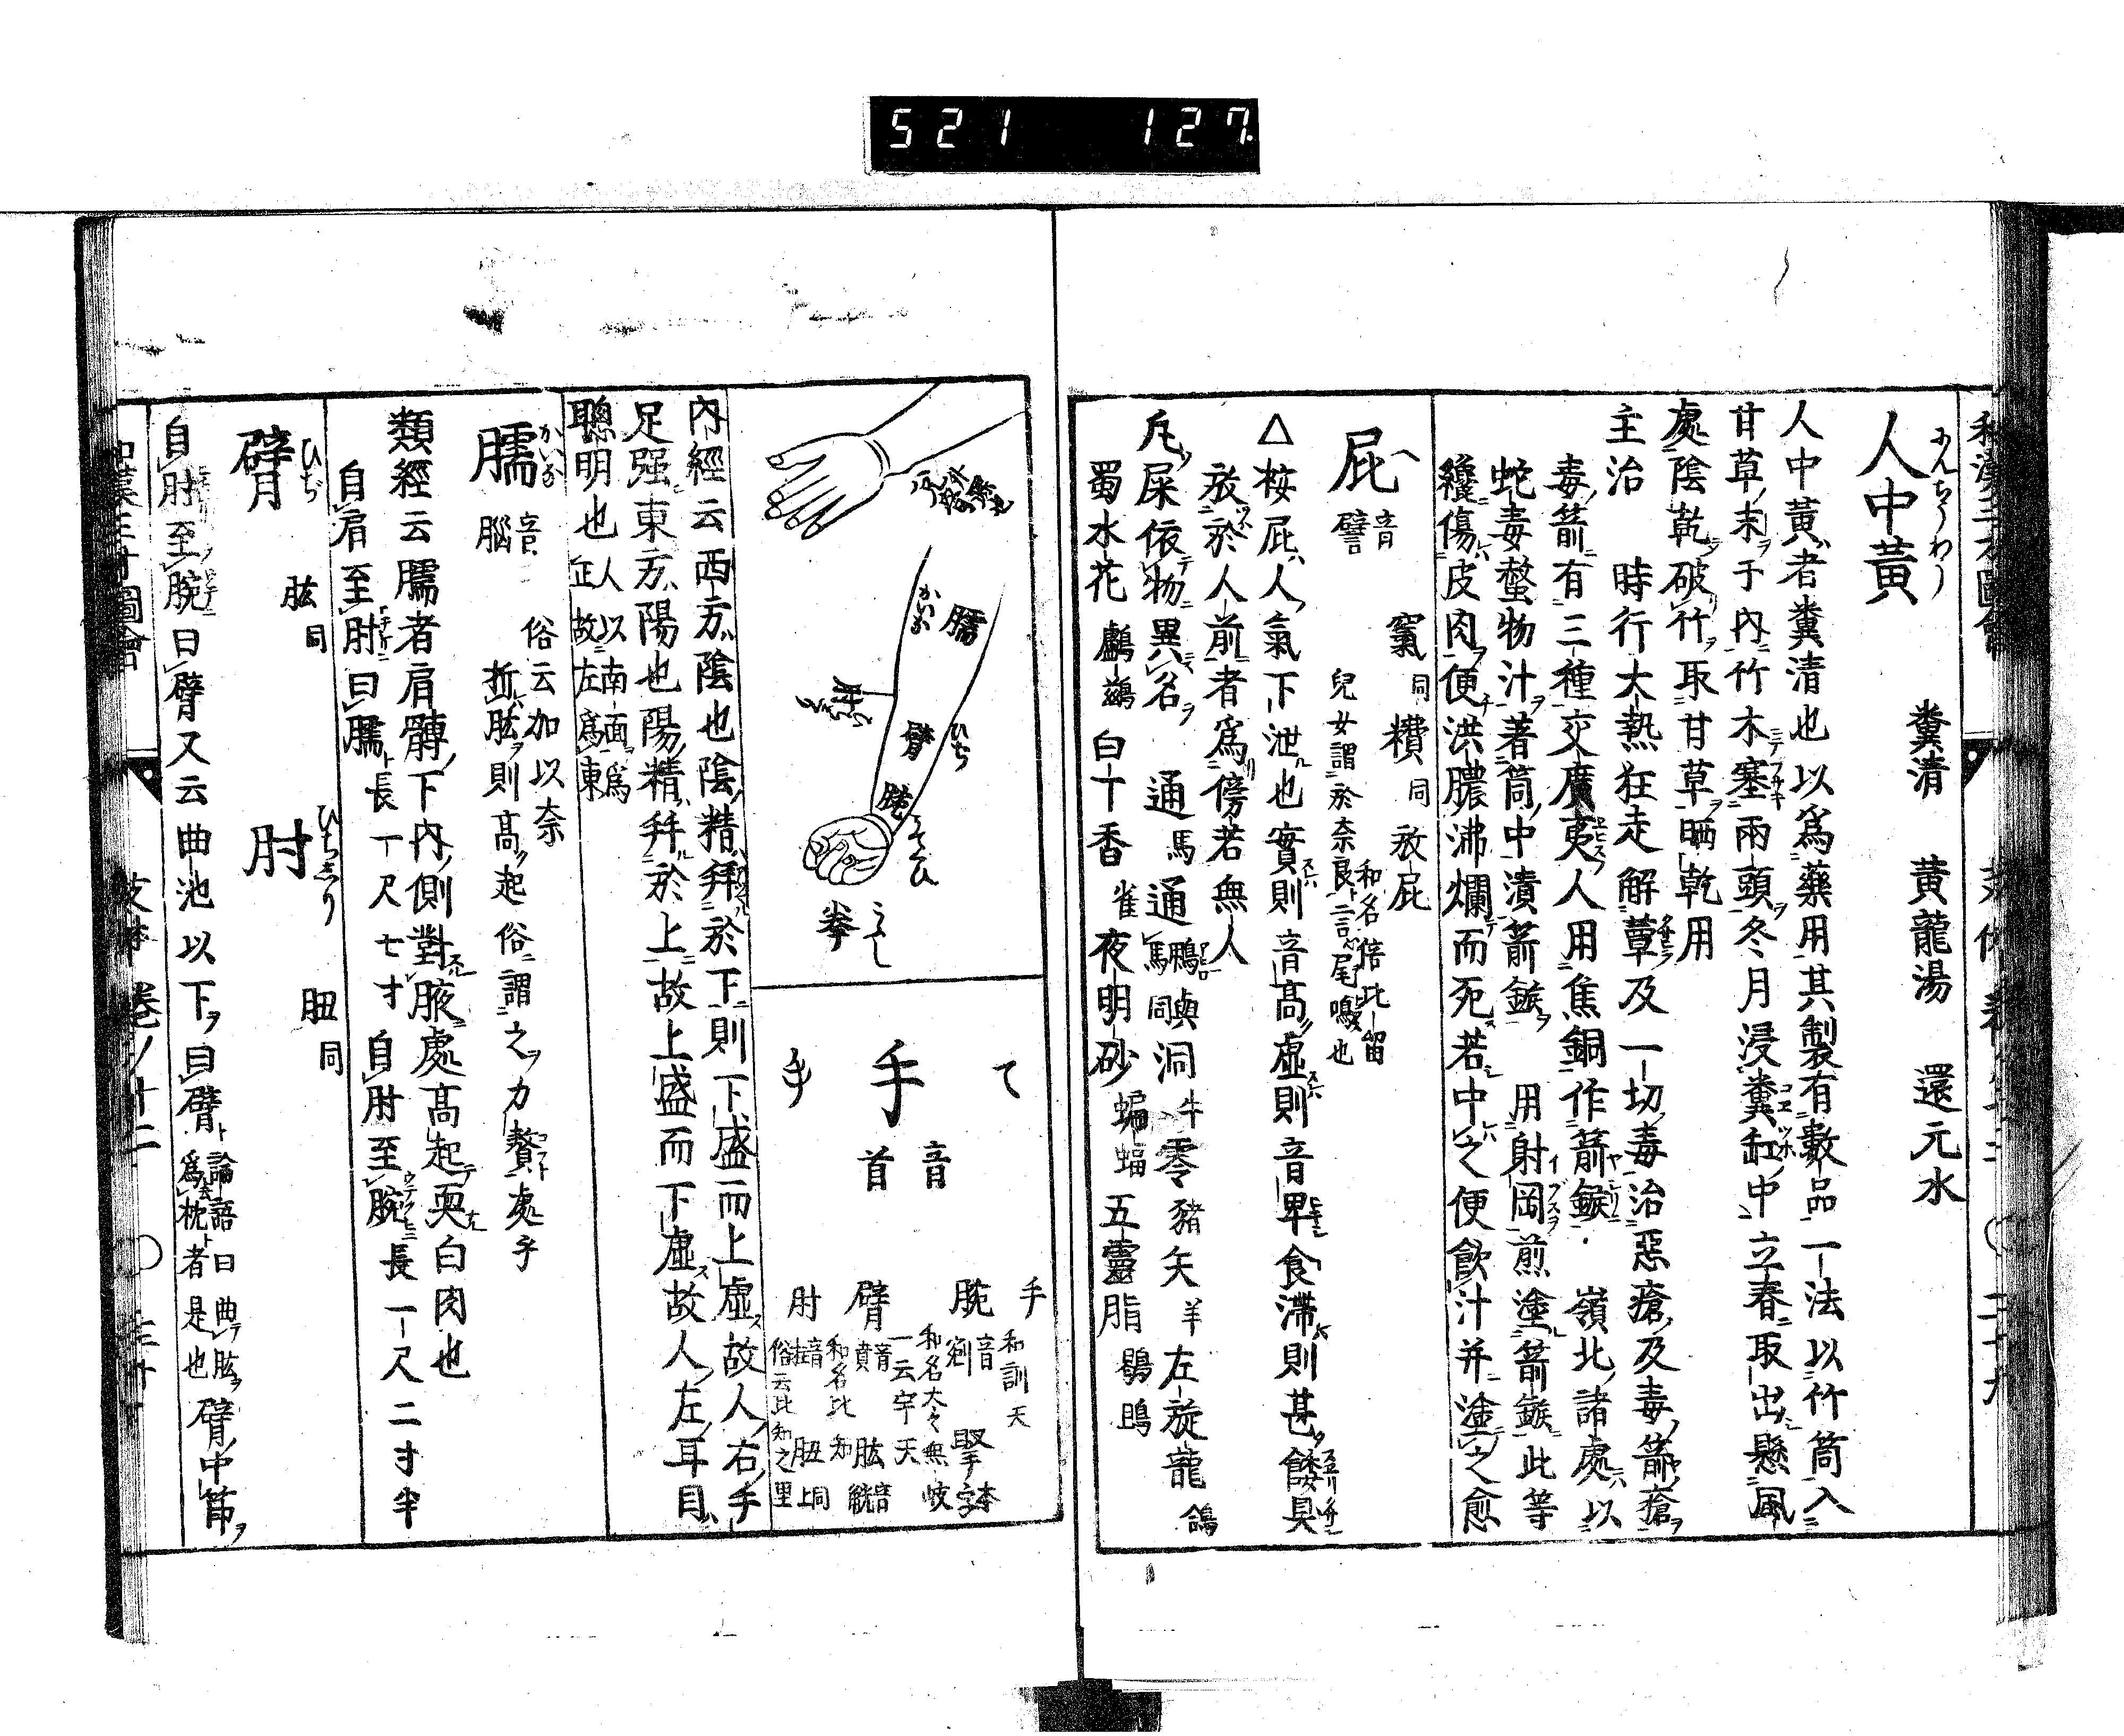 521 127
人中黃 にんちうわう 糞清 黃龍湯 還元水
人中黃者糞清也以爲藥用其製有數品一法以竹筒入
甘草末于內竹木塞兩頭冬月浸糞缸中立春取出懸風
處陰乾破竹取甘草晒乾用
主治 時行大熱狂走解蕈及一切毒治惡瘡及毒箭瘡
毒箭有三種交廣夷人用焦銅作箭鏃 嶺北諸處以
蛇毒螫物汁著筒中漬箭鏃 用射岡煎塗箭鏃此等
纔傷皮肉便洪膿沸爛而死若中之便飮汁并塗之愈
屁 へ 音譬 䆲同 𥼓同 放屁
和名倍比留
兒女謂於奈良二言尾鳴也
△桉屁人氣下泄也實則音高虛則音卑食滯則甚臭
放於人前者爲傍若無人
凡屎依物異名 通馬 通與馬同 洞牛 零豬 矢羊 左旋龍鴿
蜀水花鸕鷀 白丁香雀 夜明砂蝙蝠 五靈脂鶡鴠
臑 かいな
臂 ひぢ
拳 こぶし
手 て
音首
手 和訓天
腕 音剜 和名太々無岐 一云宇天
掔 本字
臂 音賁 和名比知
肱 音觥
肘 俗云比知之里
䏔 上同
內經云西方陰也陰精拜於下則下盛而上虛故人右手
足强東方陽也陽精拜於上故上盛而下虛故人左耳目
聰明也 人以南面爲正故左爲東
臑 かいな 音腦 俗云加以奈
折肱則高起俗謂之力贅處乎
類經云臑者肩髆下內側對腋處高起耎白肉也
自肩至肘曰臑長一尺七寸自肘至腕長一尺二寸半
臂 ひぢ 肱同 肘 ひぢしり 䏔同
自肘至腕曰臂又云曲池以下曰臂 論語曰曲肱爲枕者是也 臂中節
和漢三才圖會 支體 卷ノ十二